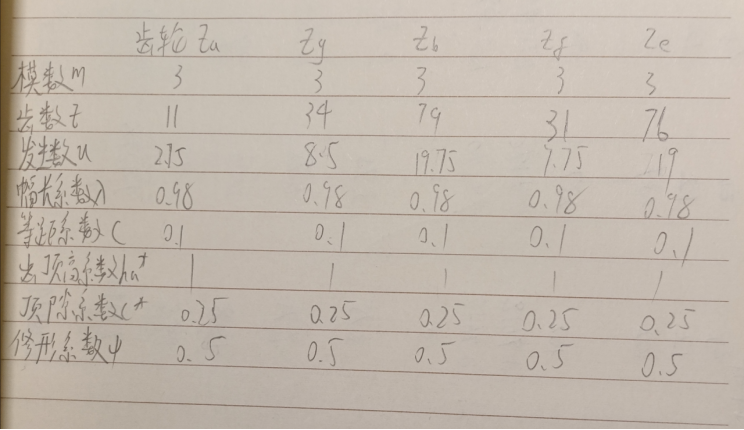 齿轮 Za Zg Zb Zf Ze
模数m 3 3 3 3 3
齿数z 11 34 79 31 76
发生数u 2.75 8.5 19.75 7.75 19
幅长系数λ 0.98 0.98 0.98 0.98 0.98
等距系数C 0.1 0.1 0.1 0.1 0.1
齿顶高系数ha* 1 1 1 1 1
顶隙系数C* 0.25 0.25 0.25 0.25 0.25
修形系数ψ 0.5 0.5 0.5 0.5 0.5